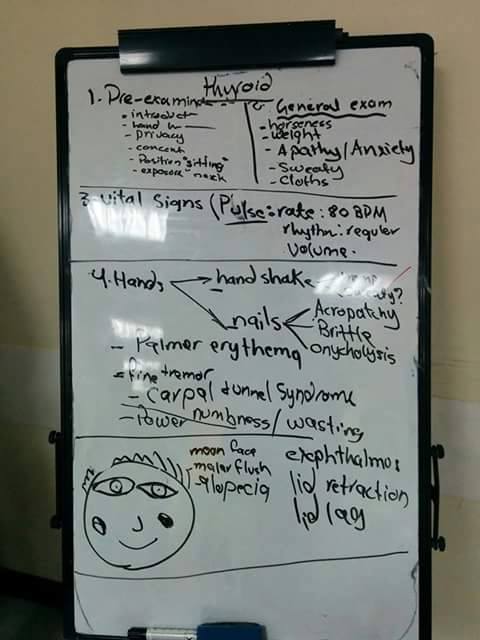 thyroid
1. Pre-examin
- introduct
- hand w
- privacy
- concent
- Position "sitting"
- exposure neck
General exam
- horseness
- weight
- Apathy/Anxiety
- Sweaty
- Cloths
3. vital Signs (Pulse: rate: 80 BDM
rhythm: reguler
Volume.
4. Hands
hand shake
nails
Acropatchy
Brittle
onycholysis
- Palmer erythema
- fine tremor
- Carpal tunnel Syndrome
- Power numbness/wasting
moon face
- malar flush
- alopecia
exophthalmos
lid retraction
lid lag